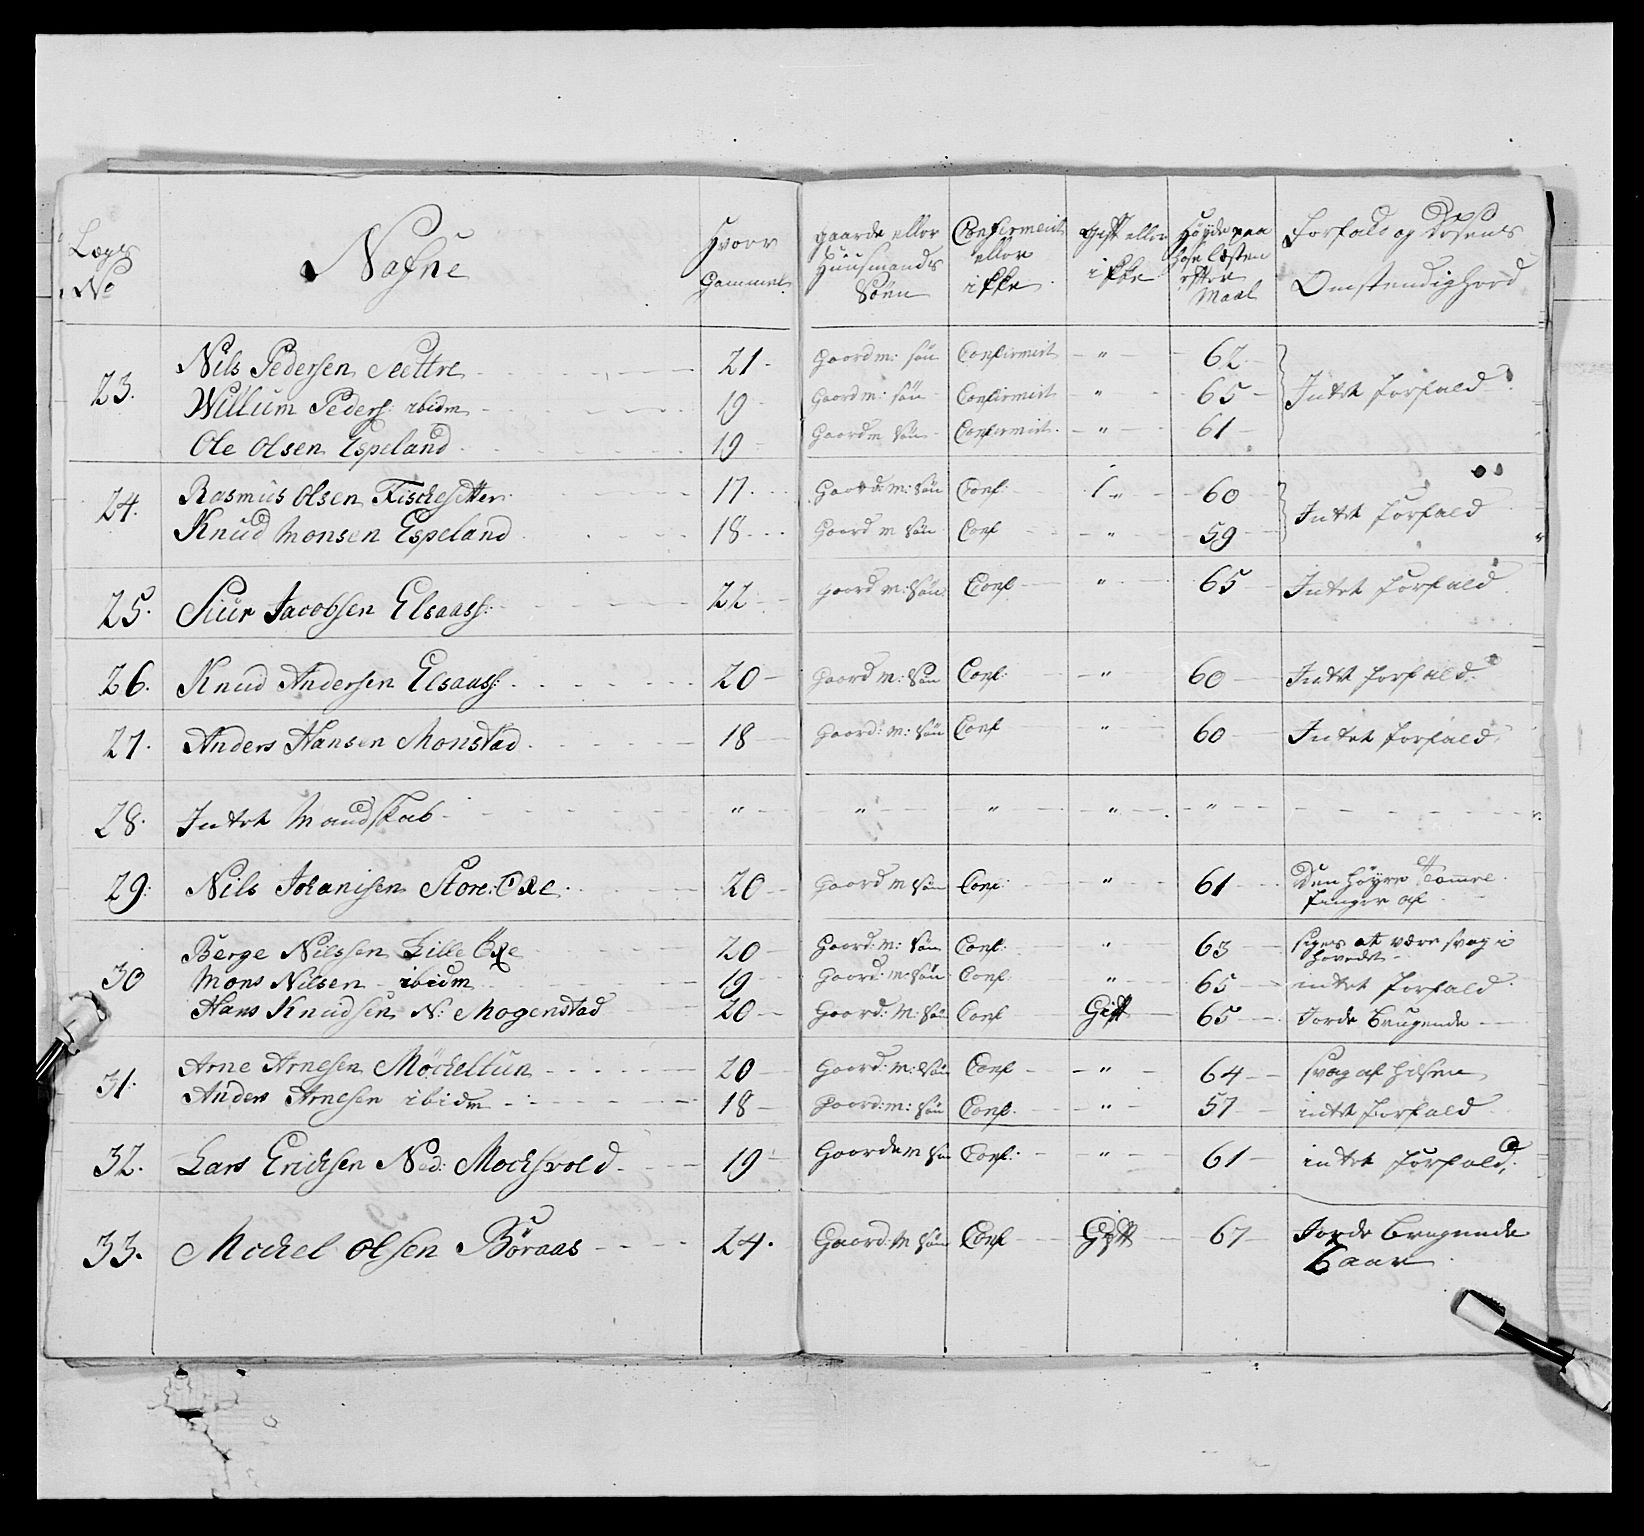 Lægs No | Nafne | Hvoor Gammel | gaarde eller Huusmands Søn | Confirmeret eller ikke | Gift eller ikke | Høyde paa hose læsten efter Maal | Forfald og Omstendighed
23. | Nils Pedersen Sættre | 21 | Gaordm: søn | Confirmirt | " | 62 | Intet forfald
Willum Peders: ibidm | 19 | Gaordm: søn | Confirmirt | " | 65
Ole Olsen Espeland | 19 | Gaordm søn | Confirmirt | " | 61
24. | Rasmus Olsen Fischesetter | 17 | Gaordm: søn | Conf: | " | 60 | Intet forfald
Knud Monsen Espeland | 18 | Gaord m søn | Conf | " | 59
25. | Siur Jacobsen Elsaass: | 22 | gaord m: søn | Conf | " | 65 | Intet forfald
26. | Knud Andersen Elsaass: | 20 | Gaord m: søn | Conf: | " | 60 | Intet forfald
27. | Anders Hansen Monstad | 18 | Gaord: m: søn | Conf | " | 60 | Intet forfald
28. | Intet Mandskab | " | " | " | " | "
29: | Nils Johanisen Store: Öxe | 20 | Gaord m søn | Conf: | " | 61 | Den høyre Tomme finger af
30 | Berge Nilssen Lille Öxe | 20 | Gaord: m: søn | Conf: | " | 63 | siges at være svag i hovedet
Mons Nilsen ibidm | 19 | Gaord: m: søn | Conf | " | 65 | intet forfald
Hans Knudsen N: Mogenstad | 20 | Gaord: m: søn | Conf | Gift | 65 | Jorde Brugende
31. | Arne Arnesen Möckeltun | 20 | Gaord: m: søn | Conf | " | 64 | svag af helsen
Anders Arnesen ibidm | 18 | Gaord: m: søn | Conf: | " | 57 | intet forfald
32. | Lars Ericksen Ned: Mocksvold | 19 | Gaorde m søn | Conf: | " | 61 | intet forfald
33. | Mickel Olsen Böraas | 24. | Gaord: m søn | Conf | Gift | 67 | Jorde brugende
aar